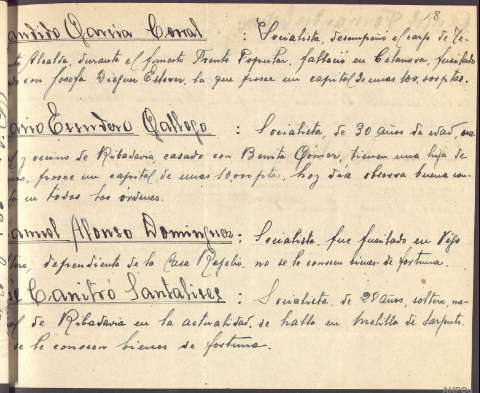 18.
andido García Corral : Socialista, desempeñó el cargo de Te-
Alcalde, durante el funesto Frente Popular, falleció en Celanova, fusilado
con Josefa Dieguez Estevez, la que posee un capital de unas 100,000 ptas.
Gallego : Socialista, de 30 años de edad, na-
y vecino de Ribadavia, casado con Benita Gómez, tienen una hija de
posee un capital de unas 10,000 ptas, hoy dia observa buena con-
en todos los ordenes.
Alonso Dominguez : Socialista, fue fusilado en Vigo
dependiente de la Casa Rogelio, no se le conocen bienes de fortuna.
Santalices : Socialista, de 28 años, soltero, na-
de Ribadavia en la actualidad, se halla en Melilla de Sargento.
se le conocen bienes de fortuna.